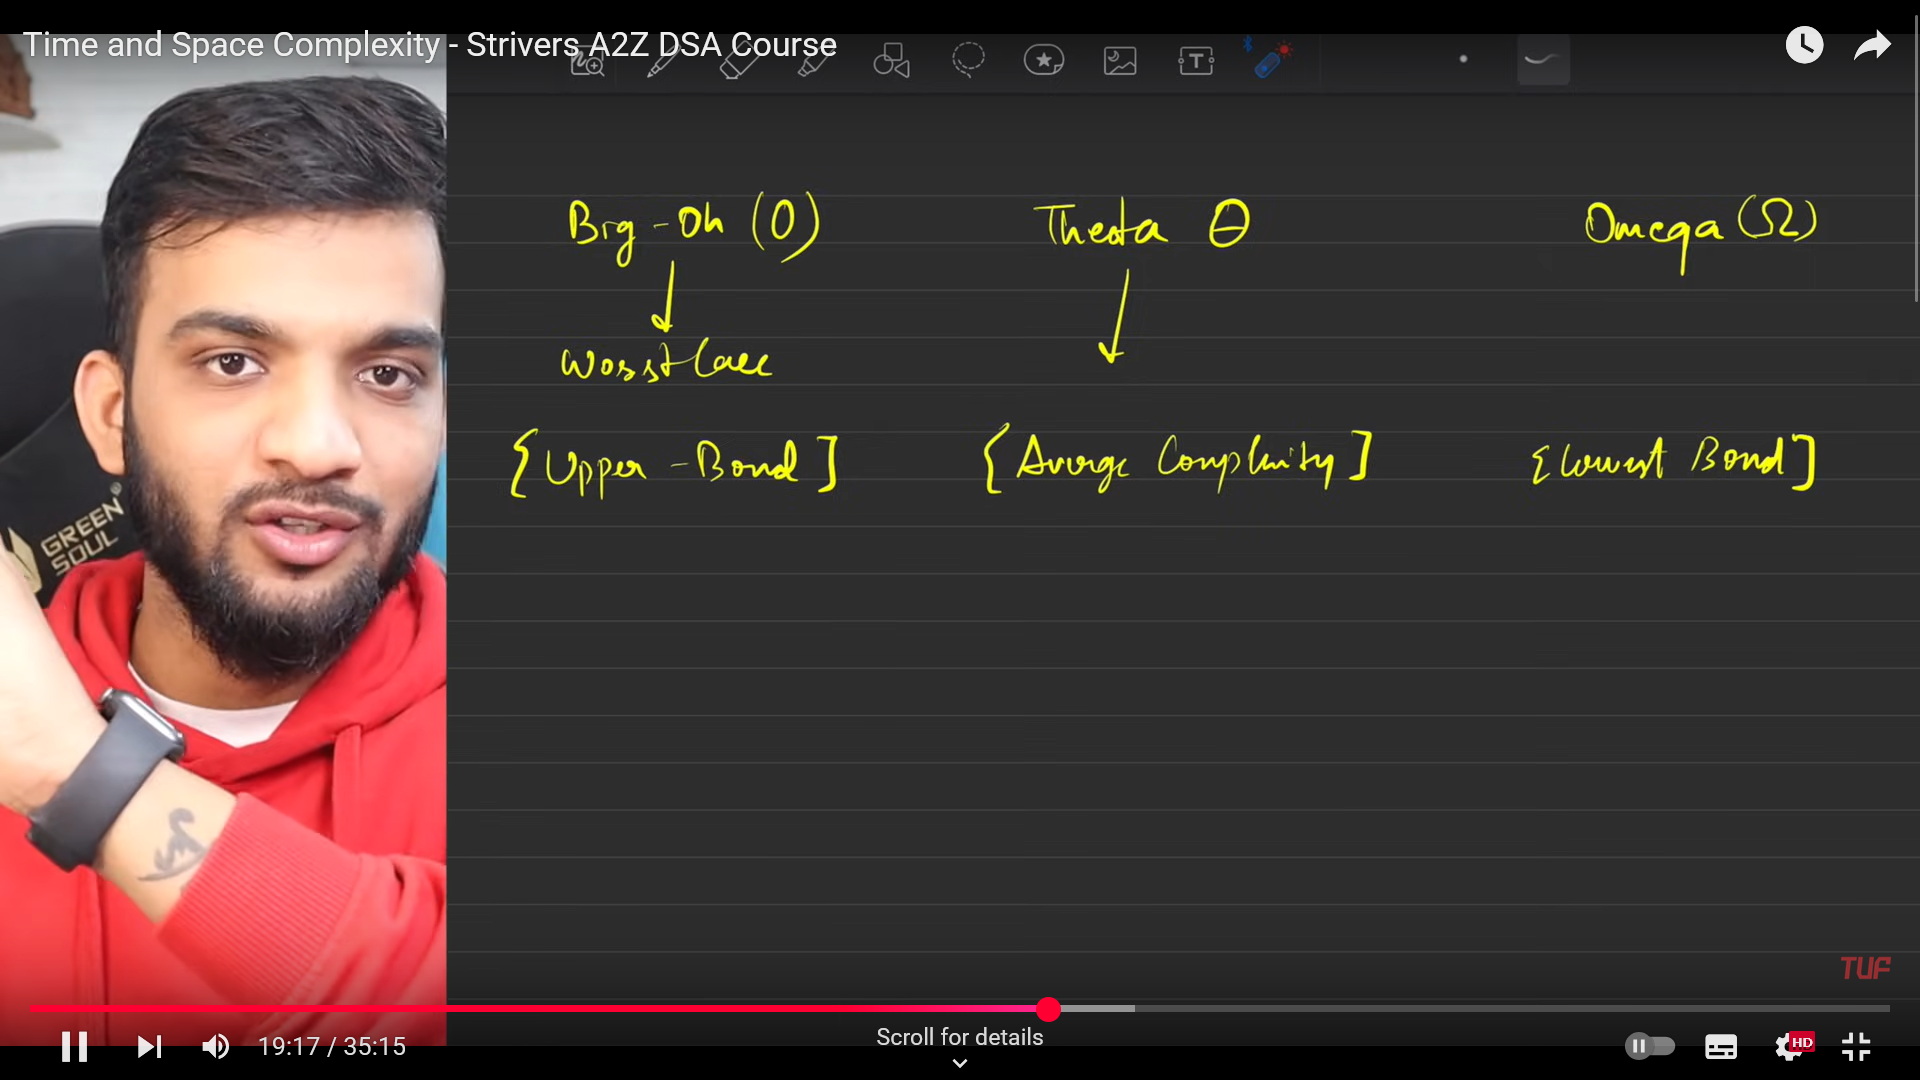 Time and Space Complexity - Strivers A2Z DSA Course
Big-Oh (O)
Theata θ
Omega (Ω)
Worst Case
{Upper-Bond]
{Averge Complexity]
{lowest Bond]
GREEN
SOUL
TUF
19:17 / 35:15
Scroll for details
HD